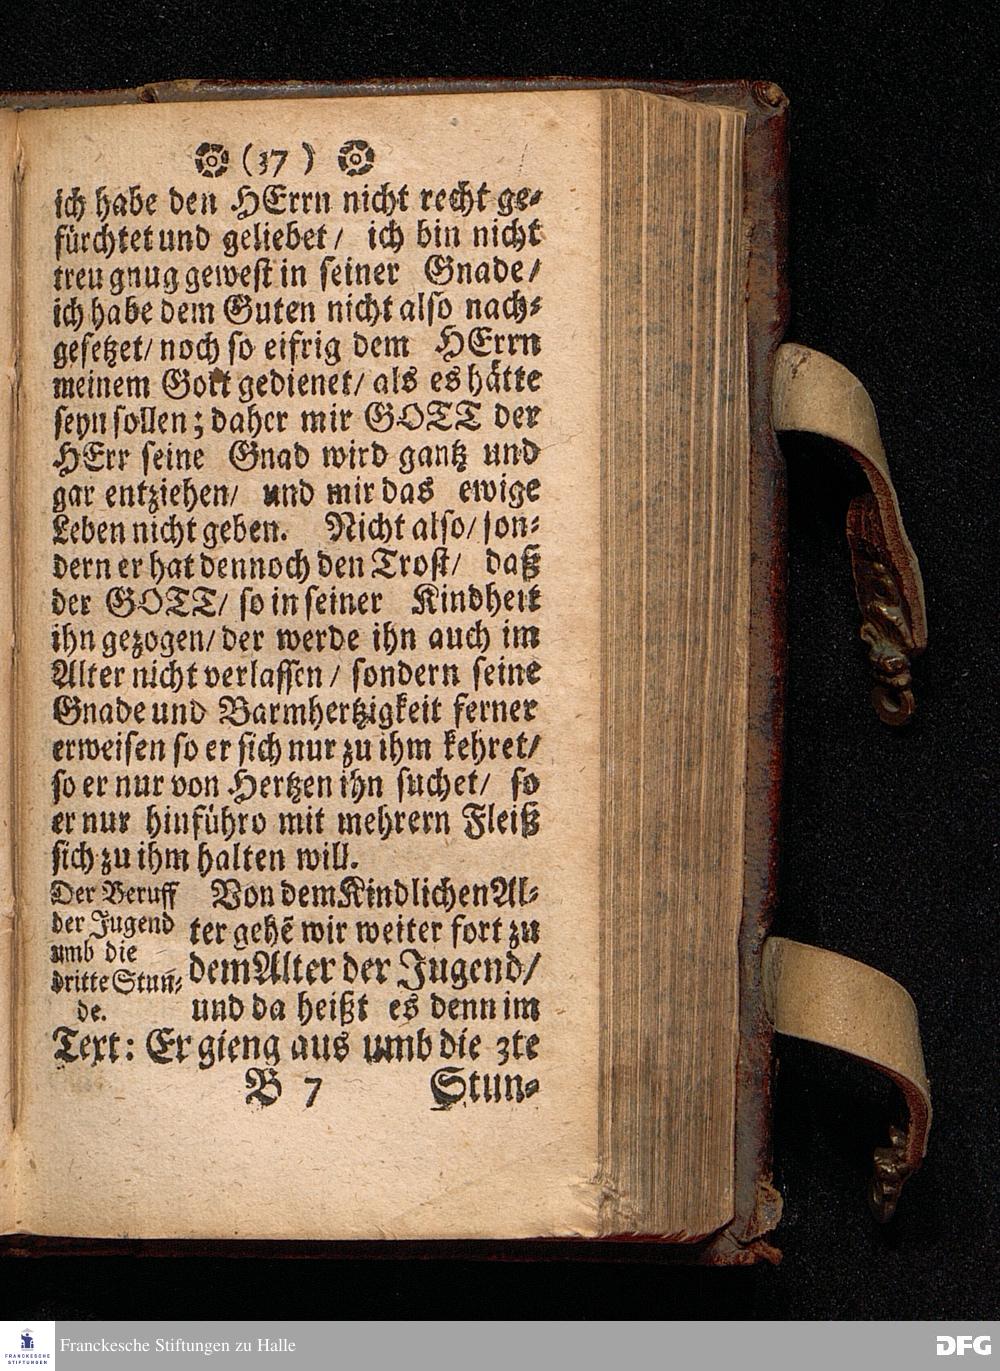 (37)
ich habe den HErrn nicht recht ge-
fürchtet und geliebet/ ich bin nicht
treu gnug gewest in seiner Gnade/
ich habe dem Guten nicht also nach-
gesetzet/ noch so eifrig dem HErrn
meinem Gott gedienet/ als es hätte
seyn sollen; daher mir GOTT der
HErr seine Gnad wird gantz und
gar entziehen/ und mir das ewige
Leben nicht geben. Nicht also/ son-
dern er hat dennoch den Trost/ daß
der GOTT/ so in seiner Kindheit
ihn gezogen/ der werde ihn auch im
Alter nicht verlassen/ sondern seine
Gnade und Barmhertzigkeit ferner
erweisen so er sich nur zu ihm kehret/
so er nur von Hertzen ihn suchet/ so
er nur hinführo mit mehrern Fleiß
sich zu ihm halten will.
Der Beruff
der Jugend
umb die
dritte Stun-
de.
Von dem Kindlichen Al-
ter gehē wir weiter fort zu
dem Alter der Jugend/
und da heißt es denn im
Text: Er gieng aus umb die 3te
B 7 Stun-
FRANCKESCHE
STIFTUNGEN
Franckesche Stiftungen zu Halle
DFG